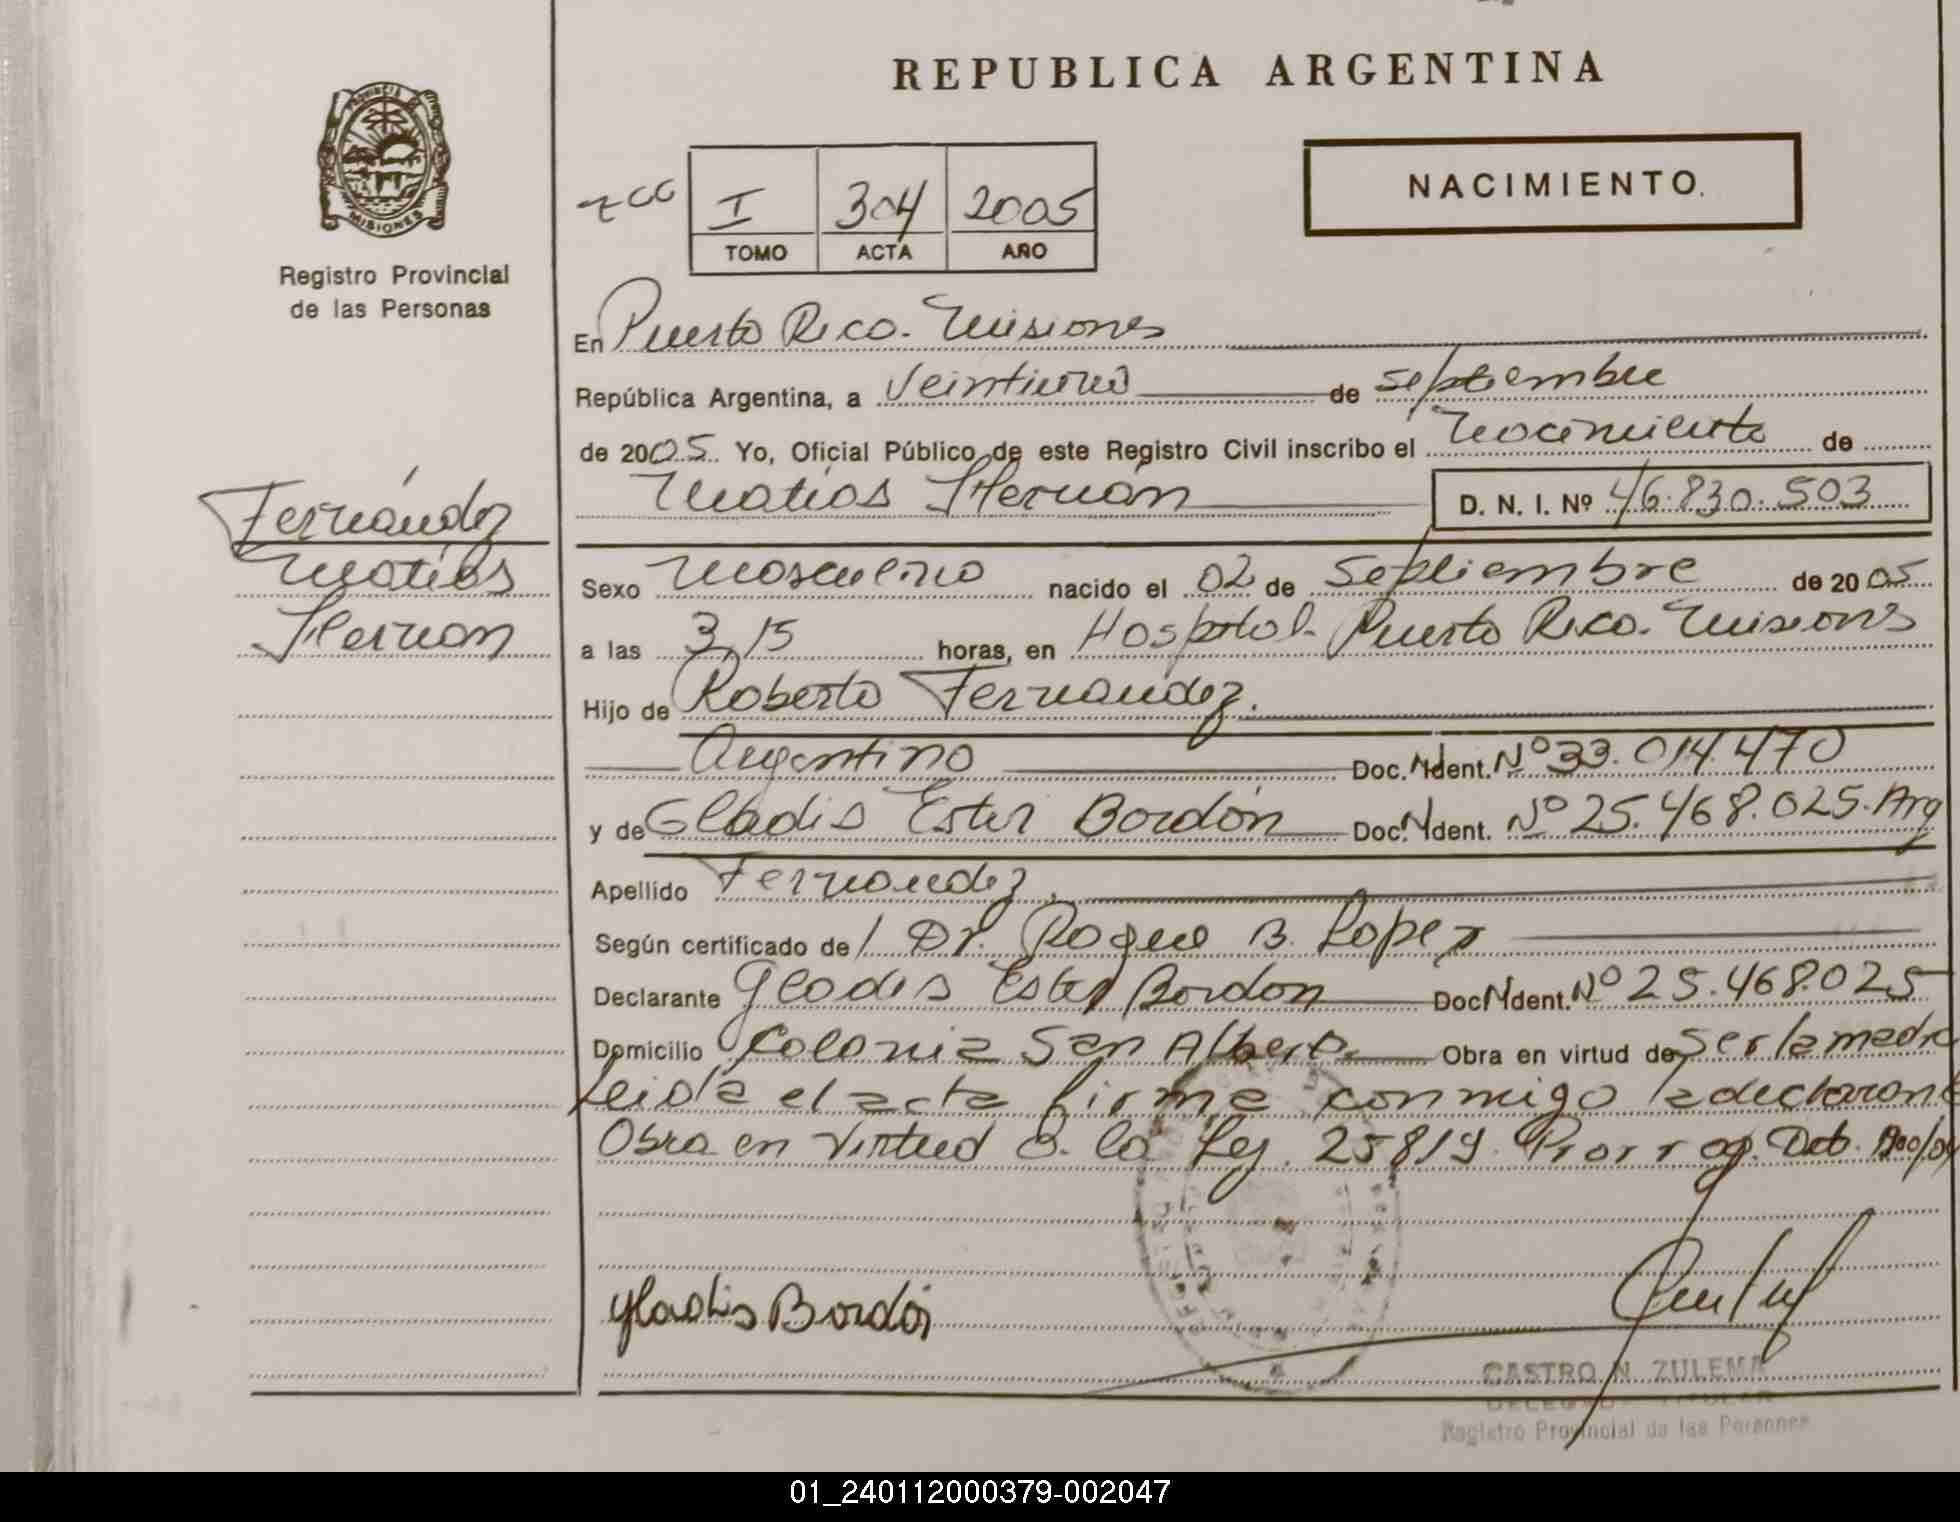 REPUBLICA ARGENTINA
PROVINCIA DE
MISIONES
Registro Provincial
de las Personas
NACIMIENTO.
I 304 2005
TOMO ACTA AÑO
En Puerto Rico. Misiones
República Argentina, a Veintiuno de septiembre
de 2005. Yo, Oficial Público de este Registro Civil inscribo el Nacimiento de
Matias Hernán D. N. I. Nº 46.830.503
Fernández
Matias
Hernan
Sexo Masculino nacido el 02 de Septiembre de 2005
a las 3,15 horas, en Hospital. Puerto Rico. Misiones
Hijo de Roberto Fernandez.
Argentino Doc. Ident. Nº 33.014.470
y de Gladis Ester Bordón Doc. Ident. Nº 25.468.025. Arg
Apellido Fernandez.
Según certificado de Dr. Roque B. Lopez
Declarante Gladis Ester Bordon Doc. Ident. Nº 25.468.025
Domicilio Colonia San Alberto Obra en virtud de ser la madre
Leida el acta firma conmigo la declarante
Obra en virtud a la Ley. 25819. Prorrog. Dct.
Gladis Bordón
CASTRO N. ZULEMA
DELEGADA TITULAR
Registro Provincial de las Personas
01_240112000379-002047